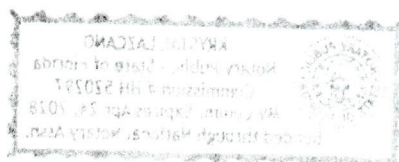 KRYSTAL LAZCANO
Notary Public - State of Florida
Commission # HH 520297
My Comm. Expires Apr 24, 2028
Bonded through National Notary Assn.